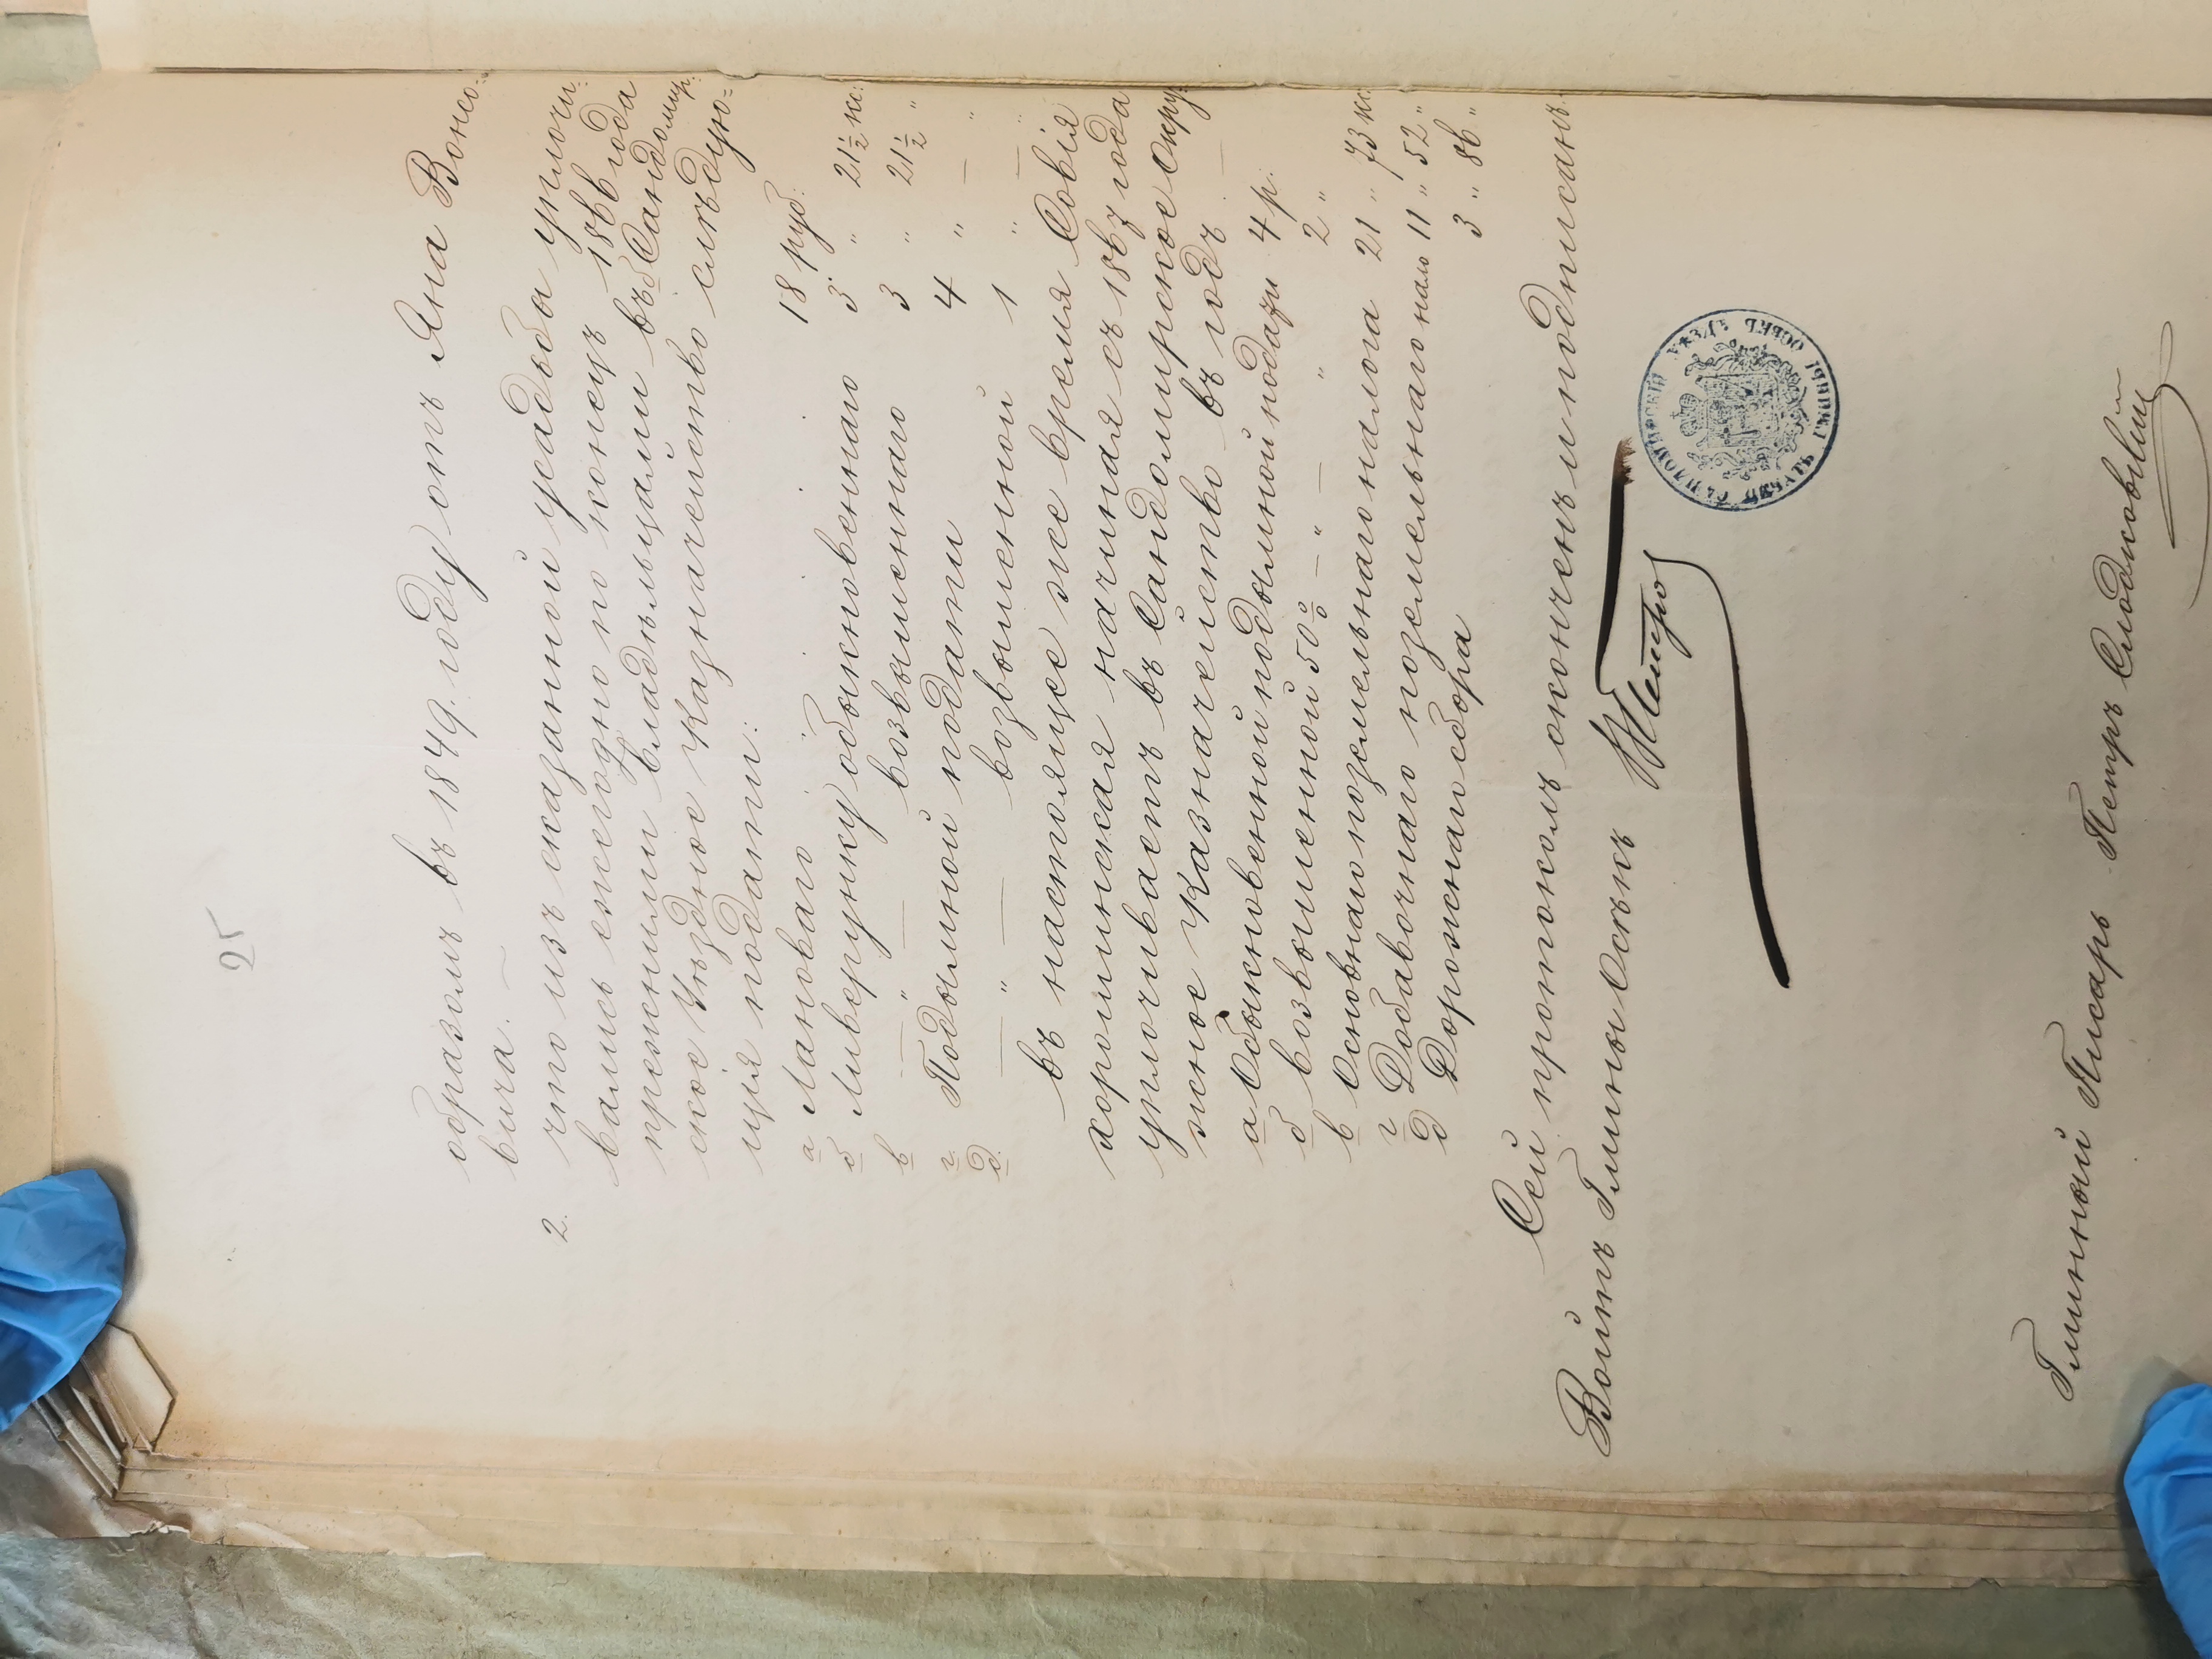 25
образомъ въ 1849. году отъ Яна Вонсо=
вича. —
2. что изъ сказанной усадьбы уплочи=
вались ежегодно по конецъ 1866 года
прежними владѣльцами въ Сандомир=
ское Уѣздное Казначейство слѣдую=
щія подати:
а Лановаго 18 руб:
б Ливерунку обыкновеннаго 3 " 21½ кк:
в — " — возвышеннаго 3 " 21½ "
г Подымной подати 4 " — "
д — " — возвышенной 1 " — "
въ настоящее же время Совія
хорошинская начиная съ 1867 года
уплочиваетъ въ Сандомирское Окру=
жное Казначейство въ годъ
а Обыкновенной подымной подати 4 р. —
б возвышенной 50% — " — " 2 "
в Основнаго поземельнаго налога 21 " 73 кк:
г Добавочнаго поземельнаго нало 11 " 52 "
д Дорожнаго сбора 3 " 86 "
Сей протоколъ оконченъ и подписанъ.
Войтъ Гмины Осѣкъ
Гминный Писарь Петръ